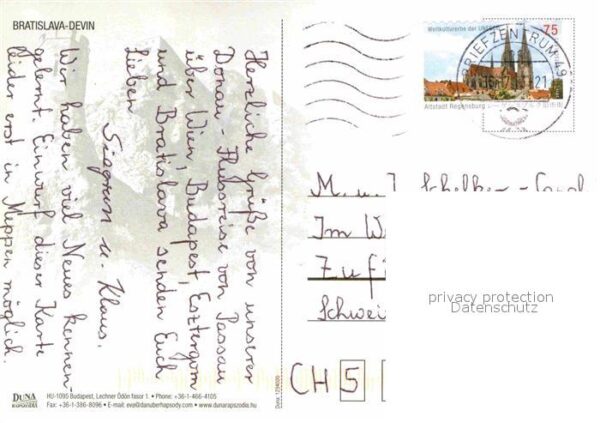 BRATISLAVA-DEVIN
Herzliche Grüße von unserer
Donau-Flussreise von Passau
über Wien, Budapest, Esztergom
und Bratislava senden Euch
Lieben
Siegrun u. Klaus.
Wir haben viel Neues kennen-
gelernt. Einwurf dieser Karte
leider erst in Meppen möglich.
Weltkulturerbe der UNESCO
75
Altstadt Regensburg
BRIEFZENTRUM 49
21
M. u.
Im W
Zufi
Schweiz
CH 5
privacy protection
Datenschutz
DUNA
RAPSZÓDIA
HU-1095 Budapest, Lechner Ödön fasor 1. • Phone: +36-1-466-4105
Fax: +36-1-386-8096 • E-mail: eva@danuberhapsody.com • www.dunarapszodia.hu